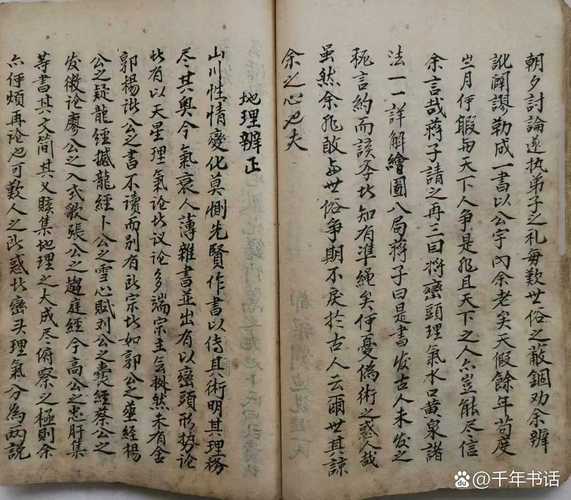 朝夕討論遂执弟子之礼每歎世俗之蔽錮劝余辨
訛闢謬勒成一書以公宇內余老矣天假餘年苟度
岁月伊暇与天下人争是非且天下之人岂能尽信
余言哉蒋子請之再三曰将巒頭理氣水口黄泉諸
法一一詳解繪圖八局蒋子曰是書发古人未发之
秘言約而該矣知有準繩矣伊憂偽術之惑人哉
雖然余非敢与世俗争期不戾于古人云爾世其諒
余之心也夫
地理辨正
山川性情变化莫惻先賢作書以傳其術明其理務
尽其奥今氣衰人薄雜書並出有以巒頭形势论
者有以天星理氣论此议论多端宗主会拟然未有舍
郭楊諸公之書不讀而别有所宗也如郭公之葬经楊
公之疑龍经撼龍经卜公之雪心賦刘公之囊经蔡公之
发微论廖公之入式歌張公之趨庭经今高公之忠肝集
等書其文简其义賅集地理之大成尽俯察之極则余
亦伊煩再论也可歎人之所惑者巒头理氣分為两説
千年书话